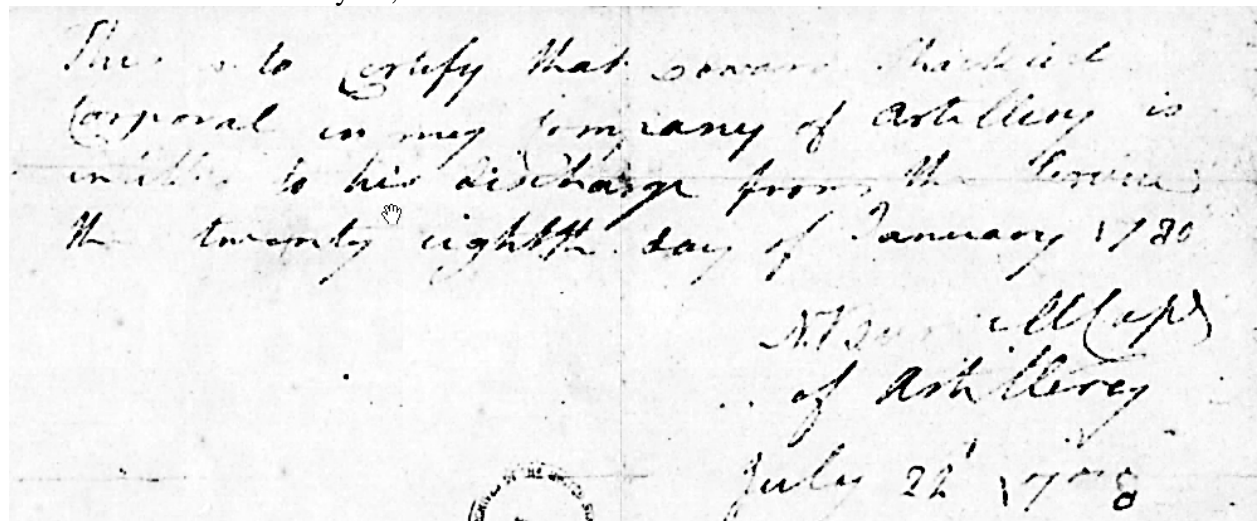 This is to Certify that
Corporal in my Company of Artillery is
to his discharge from the Service
the twenty eighth day of January 1780
Capt
of Artillery
July 22 1778